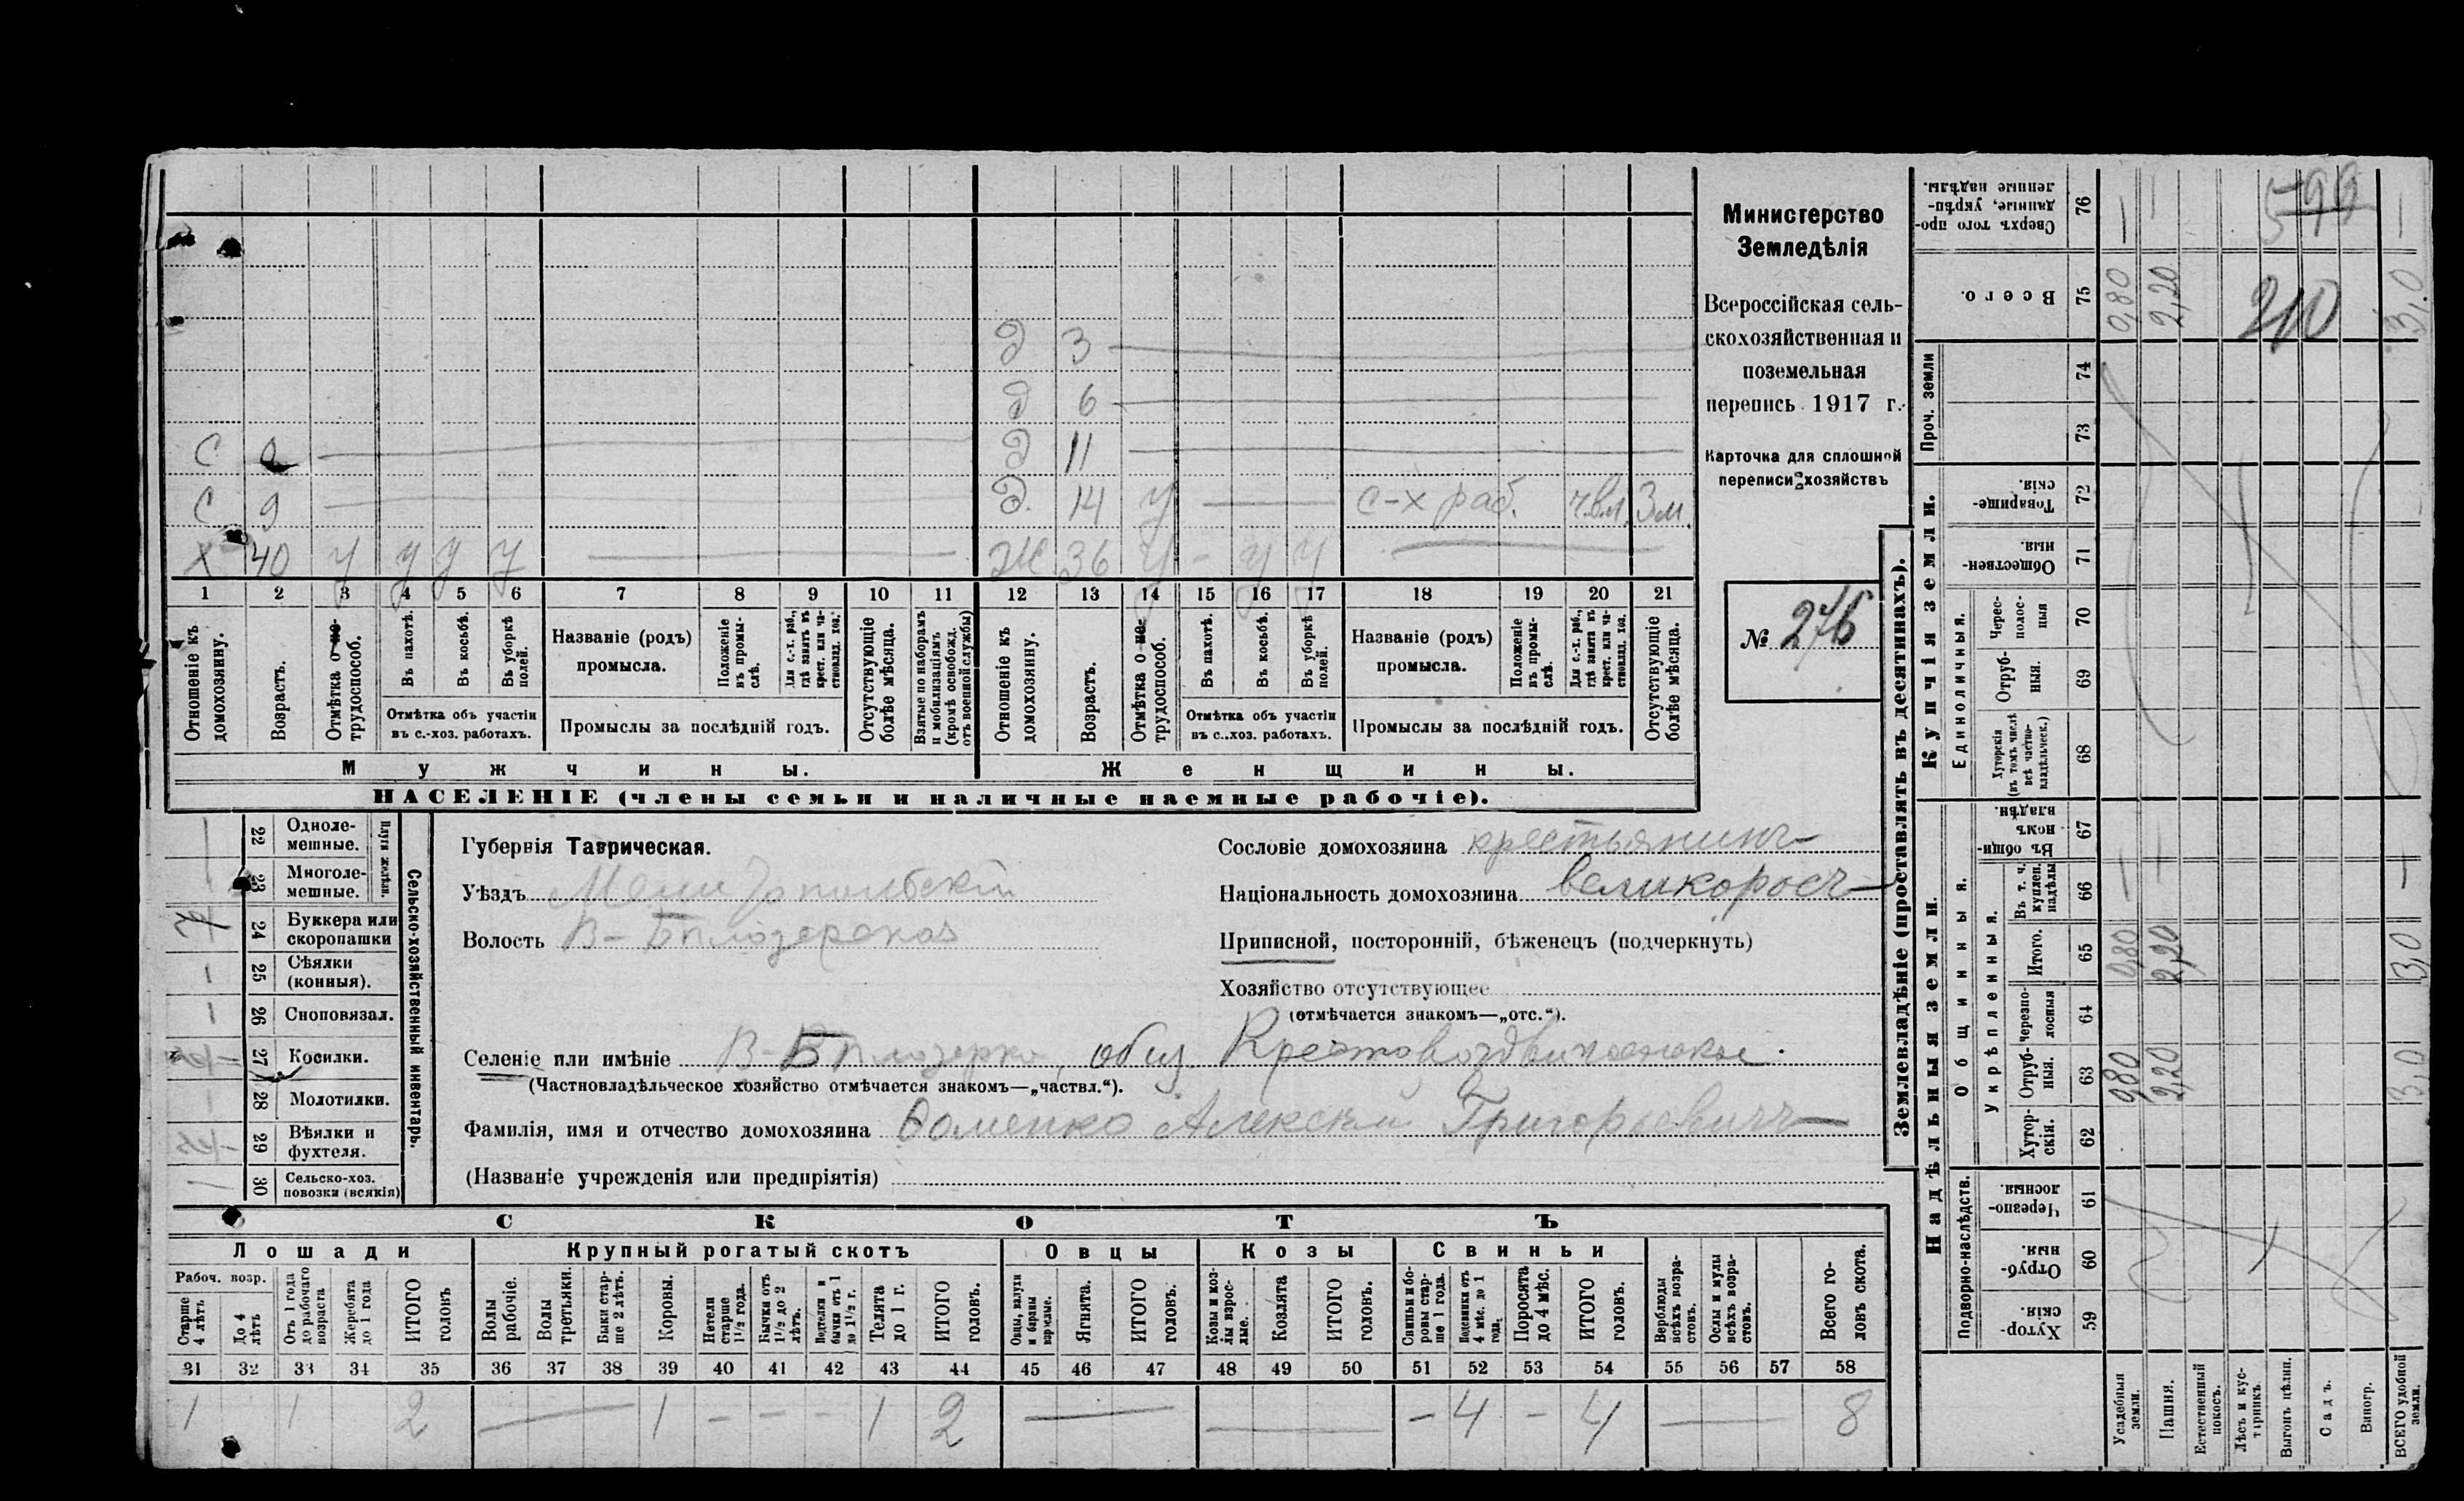 Министерство
Земледѣлія
Всероссійская сель-
скохозяйственная и
поземельная
перепись 1917 г.
Карточка для сплошной
переписи хозяйствъ
№ 276
Д 3
Д 6
С Д 11
С 9 Д. 14 У с-х раб. ч.вл. 3 м.
Х 40 У У У У Ж 36 У - У У
1 2 3 4 5 6 7 8 9 10 11 12 13 14 15 16 17 18 19 20 21
Отношеніе къ домохозяину.
Возрастъ.
Отмѣтка о не-трудоспособ.
Въ пахотѣ.
Въ косьбѣ.
Въ уборкѣ полей.
Отмѣтка объ участіи
въ с.-хоз. работахъ.
Названіе (родъ)
промысла.
Положеніе въ промы-слѣ.
Для с.-х. раб., гдѣ занятъ въ крест. или ча-стновлад. хоз.
Промыслы за послѣдній годъ.
Отсутствующіе болѣе мѣсяца.
Взятые по наборамъ и мобилизаціямъ (кромѣ освобожд. отъ военной службы)
Отношеніе къ домохозяину.
Возрастъ.
Отмѣтка о не-трудоспособ.
Въ пахотѣ.
Въ косьбѣ.
Въ уборкѣ полей.
Отмѣтка объ участіи
въ с..хоз. работахъ.
Названіе (родъ)
промысла.
Положеніе въ промы-слѣ.
Для с.-х. раб., гдѣ занятъ въ крест. или ча-стновлад. хоз.
Промыслы за послѣдній годъ.
Отсутствующіе болѣе мѣсяца.
Мужчины. Женщины.
НАСЕЛЕНІЕ (члены семьи и наличные наемные рабочіе).
Сельско-хозяйственный инвентарь.
Плуги желѣзн.
22 Одноле-мешные.
23 Многоле-мешные.
24 Буккера или скоропашки
25 Сѣялки (конныя).
26 Сноповязал.
27 Косилки.
28 Молотилки.
29 Вѣялки и фухтеля.
30 Сельско-хоз. повозки (всякія)
Губернія Таврическая.
Уѣздъ Мелитопольскій
Волость В-Бѣлозерская
Сословіе домохозяина крестьянинъ
Національность домохозяина великороссъ
Приписной, посторонній, бѣженецъ (подчеркнуть)
Хозяйство отсутствующее
(отмѣчается знакомъ—„отс.“).
Селеніе или имѣніе В-Бѣлозерка, общ. Крестовоздвиженское.
(Частновладѣльческое хозяйство отмѣчается знакомъ—„частвл.“).
Фамилія, имя и отчество домохозяина Фоменко Алексѣй Григорьевичъ
(Названіе учрежденія или предпріятія)
СКОТЪ
Лошади Крупный рогатый скотъ Овцы Козы Свиньи
Рабоч. возр.
Старше 4 лѣтъ
До 4 лѣтъ
Отъ 1 года до рабочаго возраста
Жеребята до 1 года
ИТОГО головъ
Волы рабочіе.
Волы третьяки.
Быки стар-ше 2 лѣтъ.
Коровы.
Нетели старше 1½ года.
Бычки отъ 1½ до 2 лѣтъ.
Подтелки и бычки отъ 1 до 1½ г.
Телята до 1 г.
ИТОГО головъ.
Овцы, валухи и бараны взрослые.
Ягнята.
ИТОГО головъ.
Козы и коз-лы взрос-лые.
Козлята
ИТОГО головъ.
Свиньи и бо-ровы стар-ше 1 года.
Подсвинки отъ 4 мѣс. до 1 года.
Поросята до 4 мѣс.
ИТОГО головъ.
Верблюды всѣхъ возра-стовъ.
Ослы и мулы всѣхъ возра-стовъ.
Всего го-ловъ скота.
31 32 33 34 35 36 37 38 39 40 41 42 43 44 45 46 47 48 49 50 51 52 53 54 55 56 57 58
1 1 2 — 1 - - - 1 2 — — - 4 - 4 — 8
Землевладѣніе (проставлять въ десятинахъ).
Надѣльныя земли. Купчія земли. Проч. земли
Подворно-наслѣдств. Общинныя. Единоличныя.
Укрѣпленныя.
Хутор-скія. 59
Отруб-ныя. 60
Черезпо-лосныя. 61
Хутор-скія. 62
Отруб-ныя. 63
Черезпо-лосныя 64
Итого. 65
Въ т. ч. куплен. надѣлы 66
Въ общин-номъ владѣн. 67
Хуторскія (въ томъ числѣ всѣ частно-владѣльческ.) 68
Отруб-ныя. 69
Черес-полос-ныя 70
Общественныя. 71
Товарище-скія. 72
73
74
Всего. 75
Сверхъ того про-данные, укрѣп-ленные надѣлы. 76
Усадебныя земли. 0,80 0,80 0,80
Пашня. 2,20 2,20 2,20
Естественный покосъ.
Лѣсъ и кус-тарникъ.
Выгонъ цѣлин.
Садъ.
Виногр.
ВСЕГО удобной земли. 3,0 3,0 3,0
210
599